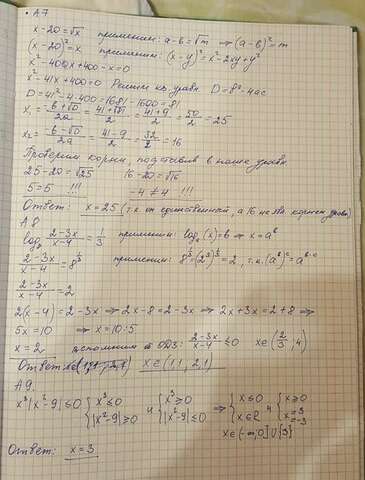 • А7
x-20=√x применим: a-b=√m ⇒ (a-b)²=m
(x-20)²=x применим: (x-y)²=x²-2xy+y²
x²-40x+400-x=0
x²-41x+400=0 Решим кв. уравн. D=b²-4ac
D=41²-4·400=1681-1600=81
x₁=(-b+√D)/2a=(41+√81)/2=(41+9)/2=50/2=25
x₂=(-b-√D)/2a=(41-9)/2=32/2=16
Проверим корни, подставив в наше уравн.
25-20=√25 16-20=√16
5=5 !!! -4≠4 !!!
Ответ: x=25 (т.к. он единственный, а 16 не явл. корнем уравн)
А8
log₈ (2-3x)/(x-4)=1/3 применим: logₐ(x)=b ⇒ x=aᵇ
(2-3x)/(x-4)=8^(1/3) применим: 8^(1/3)=(2³)^(1/3)=2, т.к. (aᵇ)ᶜ=a^(b·c)
(2-3x)/(x-4)=2
2(x-4)=2-3x ⇒ 2x-8=2-3x ⇒ 2x+3x=2+8 ⇒
5x=10 ⇒ x=10:5
x=2 вспомним о ОДЗ: (2-3x)/(x-4)≤0 x∈(2/3,4)
Ответ: x∈(1,1;2,1) x∈(1,1;2,1)
А9.
x³|x²-9|≤0 {x³≤0 {|x²-9|≥0 и {x³≥0 {|x²-9|≤0 ⇒ {x≤0 {x∈R и {x≥0 {x=3 x=-3
x∈(-∞,0]∪{3}
Ответ: x=3